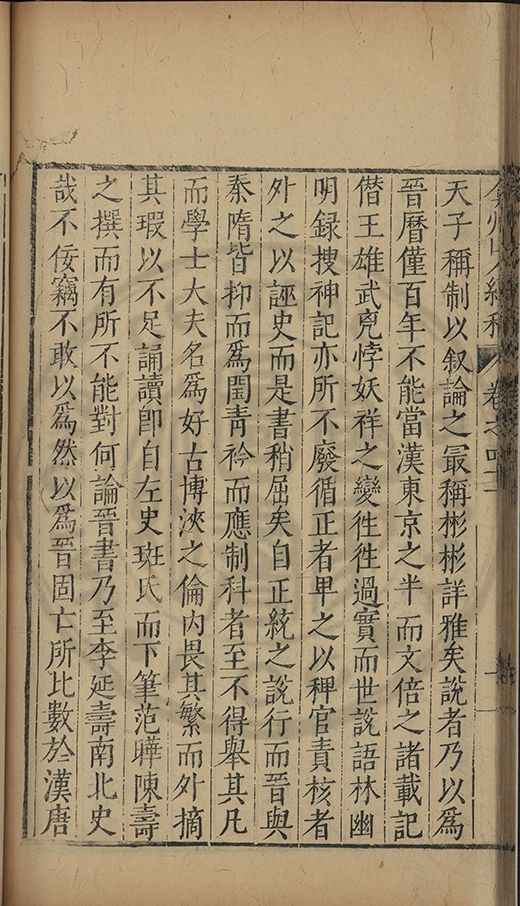 弇州山人續稿 卷之四二
天子稱制以叙論之最稱彬彬詳雅矣說者乃以爲
晉曆僅百年不能當漢東京之半而文倍之諸載記
僣王雄武兇悖妖祥之變徃徃過實而世說語林幽
明録搜神記亦所不廢循正者卑之以稗官責核者
外之以誣史而是書稍屈矣自正統之說行而晉與
秦隋皆抑而爲閏靑衿而應制科者至不得舉其凡
而學士大夫名爲好古博浹之倫內畏其繁而外摘
其瑕以不足誦讀卽自左史班氏而下筆范曄陳壽
之撰而有所不能對何論晉書乃至李延壽南北史
哉不佞竊不敢以爲然以爲晉固亡所比數於漢唐